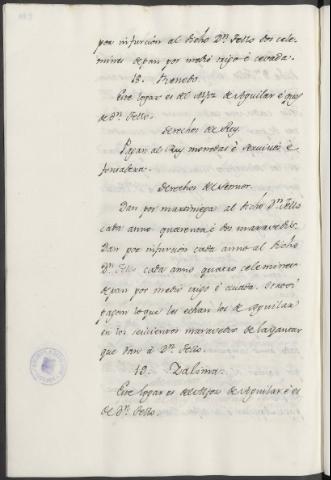 por infurción al dicho Dn. Tello dos cele-
mines de pan por medio trigo è cevada.
18.
Este logar es del Alfoz de Aguilar è que
es de Dn. Tello.
Derechos del Rey.
Pagan al Rey monedas è servicios è
fonsadera.
Derechos del Sennor.
Dan por martiniega al dicho Dn. Tello
cada anno quarenta è dos maravedis.
Dan por infurcion cada anno al dicho
Dn. Tello cada anno quatro celemines
de pan por medio trigo è cevada. Otrosi
pagan lo que les echan los de Aguilar
en los seiscientos maravedis de la yantar
que dan à Dn. Tello.
19. Zalima.
Este logar es del Alfoz de Aguilar è es
de Dn. Tello.